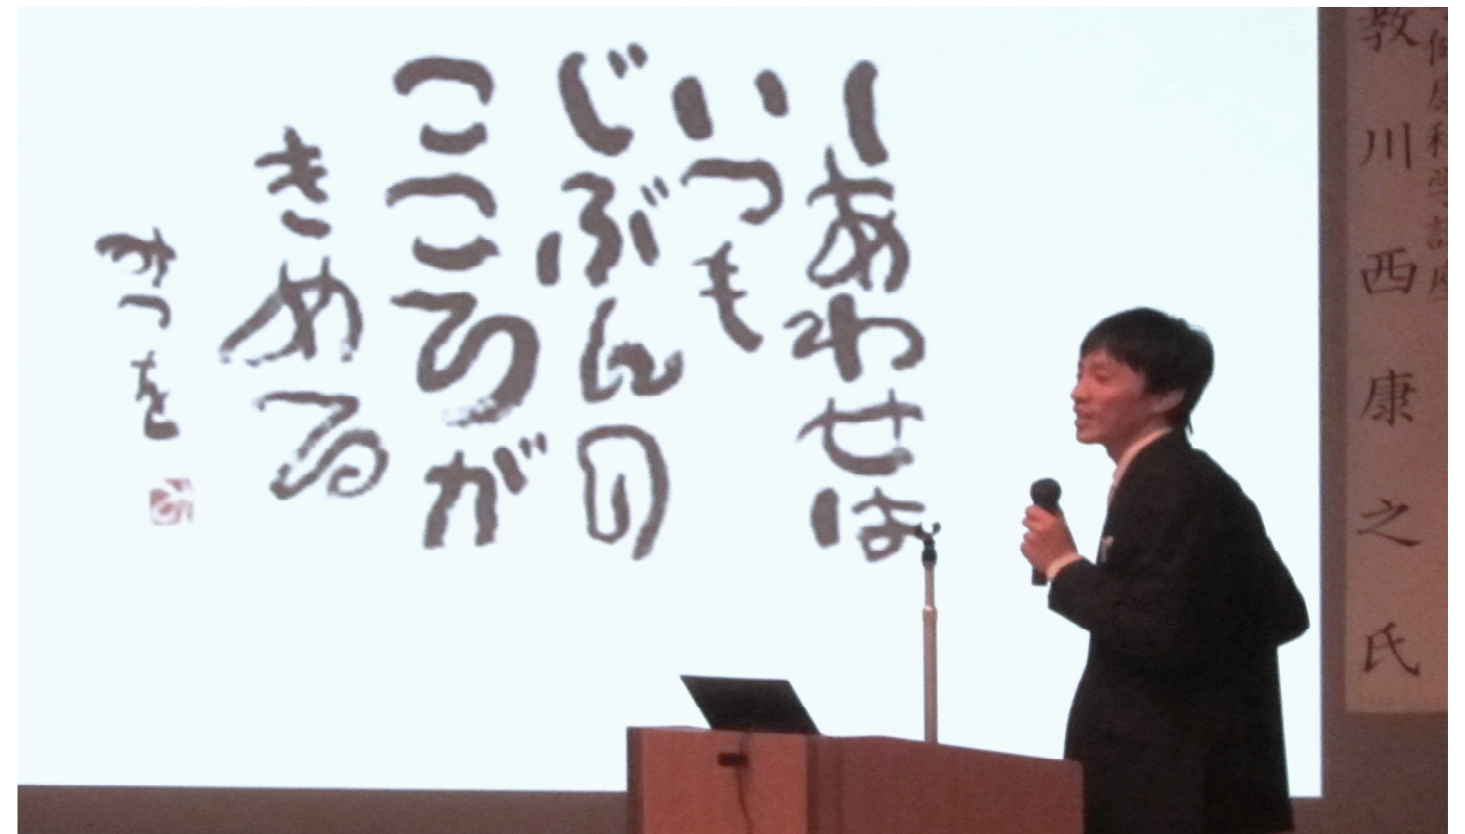 しあわせは
いつも
じぶんの
こころが
きめる
みつを
教 川西康之氏